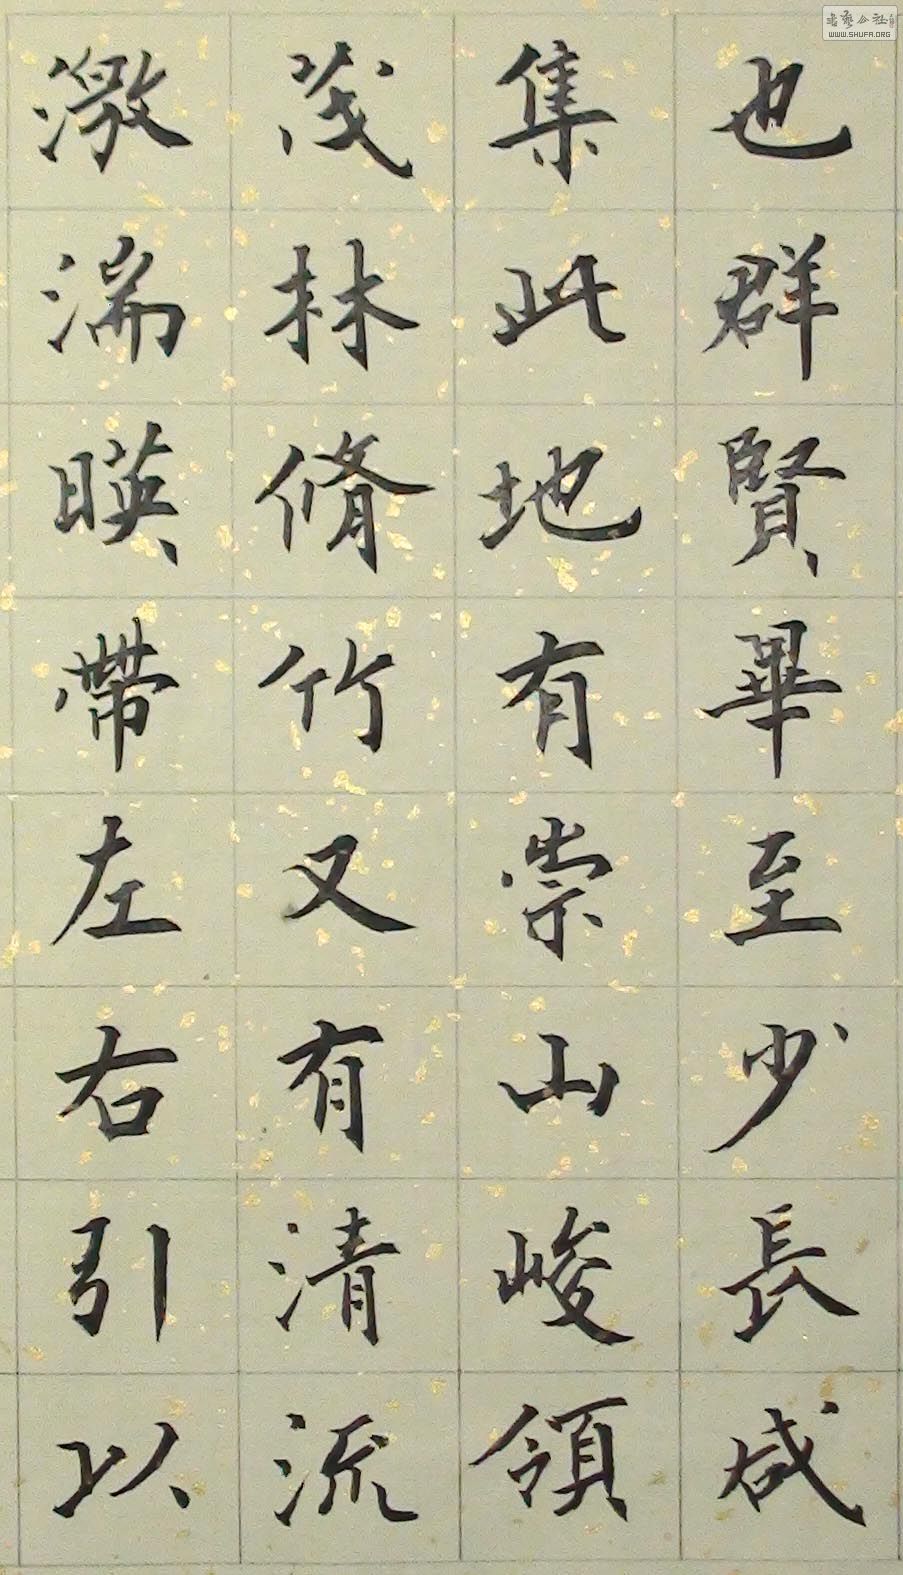 也群賢畢至少長咸
集此地有崇山峻領
茂林脩竹又有清流
激湍暎帶左右引以
WWW.SHUFA.ORG